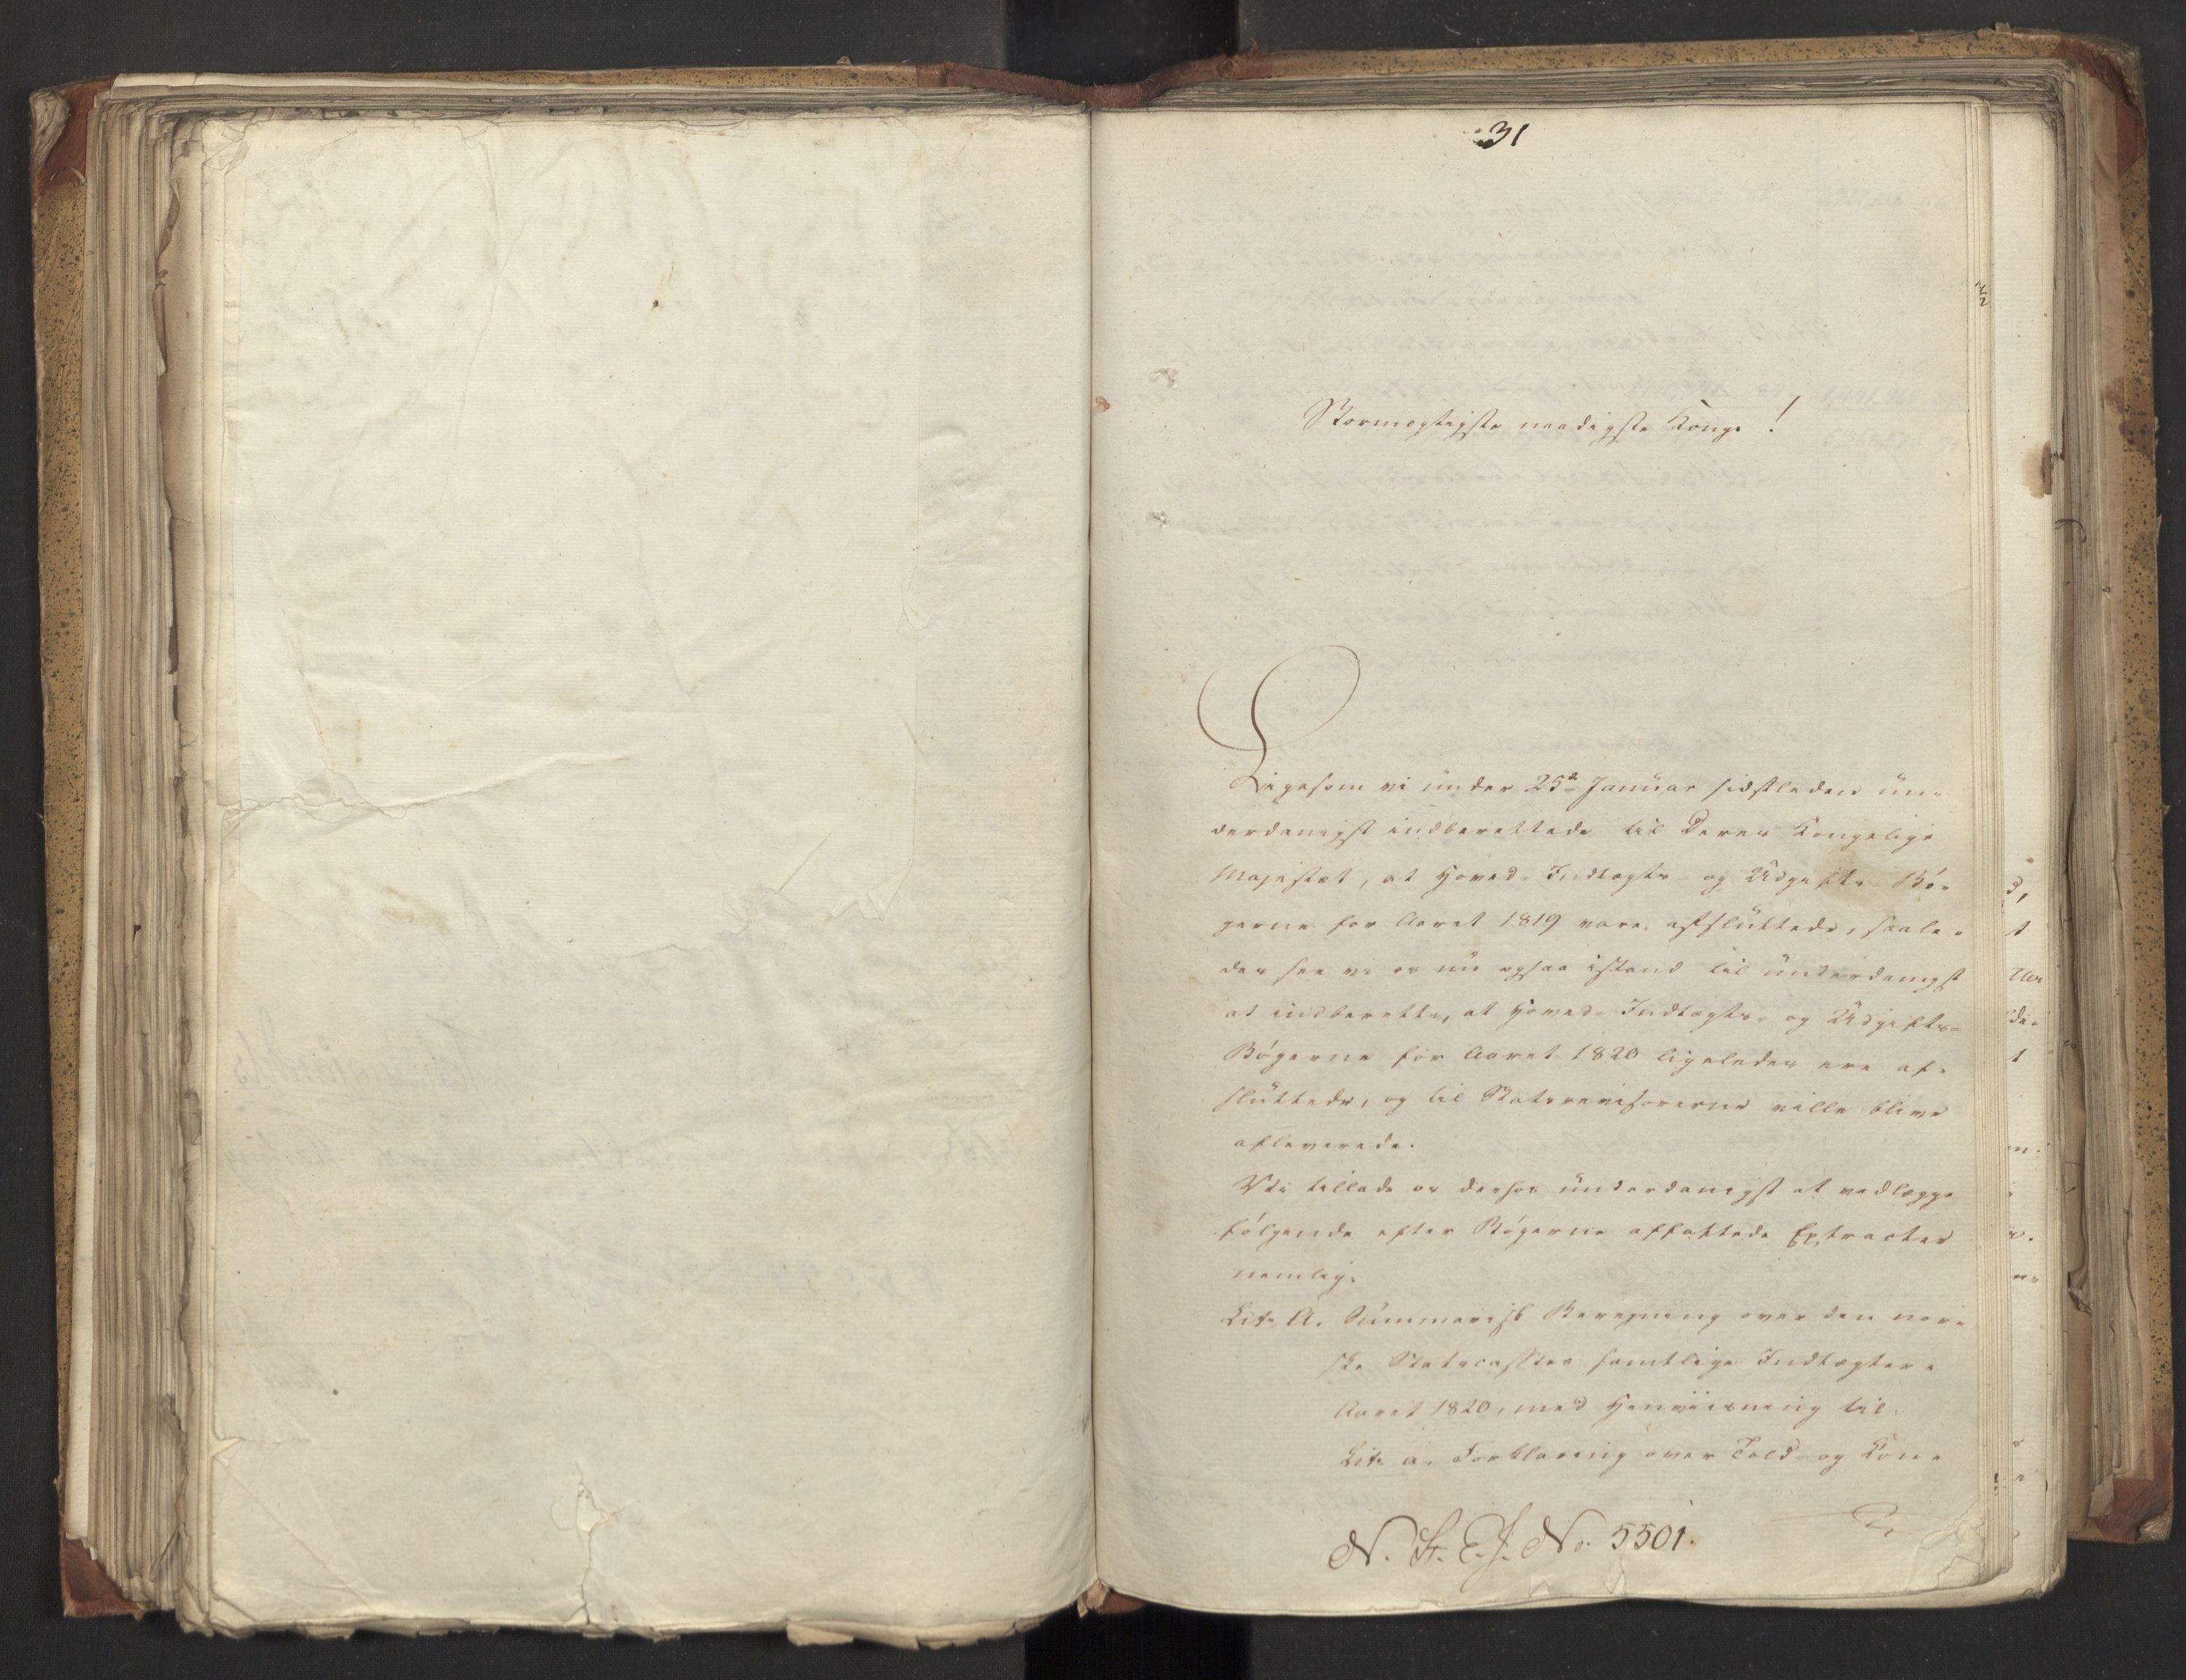 31
Stormægtigste naadigste Konge!
Ligesom vi under 25de Januar sidstleden un-
derdanigst indberettede til Deres Kongelige
Majestæt, at Hoved-Indtægts- og Udgifts-Bø-
gerne for Aaret 1819 vare afsluttede, saale-
des see vi os nu ogsaa istand til underdanigst
at indberette, at Hoved-Indtægts- og Udgifts-
Bøgerne for Aaret 1820 ligeledes ere af-
sluttede, og til Statsrevisorerne ville blive
afleverede.
Vi tillade os derfor underdanigst at vedlægge
følgende efter Bøgerne affattede Extracter
nemlig:
Lit. A. Summarisk Beregning over den nor-
ske Statscasses samtlige Indtægter i
Aaret 1820, med Henviisning til
Lit. a. Forklaring over Told og Con-
N. St. E. J. No. 5501.